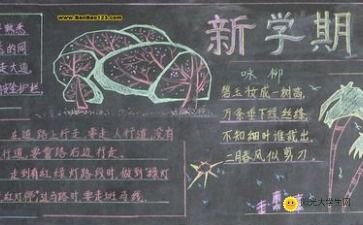 www.Banbao123.com
新学期
的同
走大道
护栏
咏柳
碧玉妆成一树高
万条垂下绿丝绦
不知细叶谁裁出
二月春风似剪刀
在道路上行走,要走人行道,没有
行道,要靠路右边行走。
走到有红绿灯路段时,做到"绿灯
过马路时,要走斑马线。
大学生网